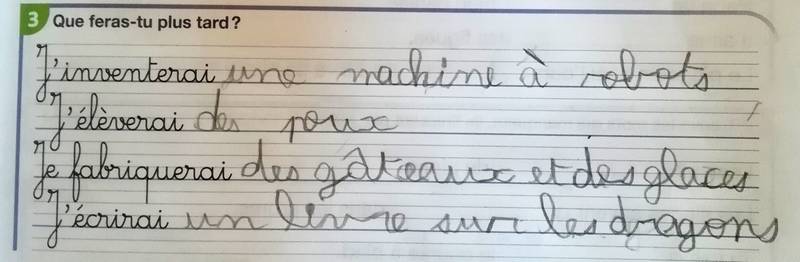 3 Que feras-tu plus tard ?
J'inventerai une machine à robots
J'élèverai des poux
Je fabriquerai des gâteaux et des glaces
J'écrirai un livre sur les dragons